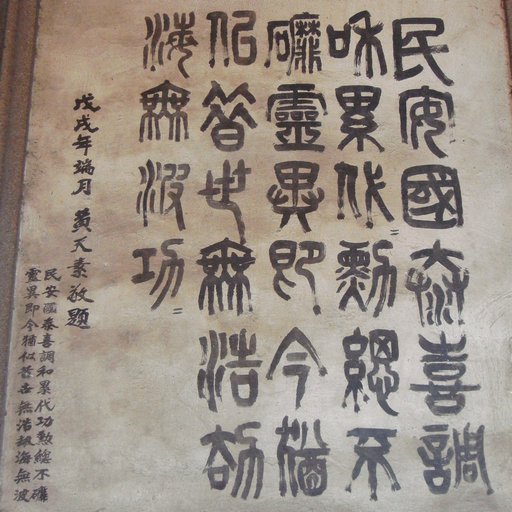 民安國泰喜調
和累代勳總不
礳靈異即今猶
似昔世無浩劫
海無波功
戊戌年瑞月 黃天素敬題
民安國泰喜調和累代功勳總不礳
靈異即今猶似昔世無浩劫海無波